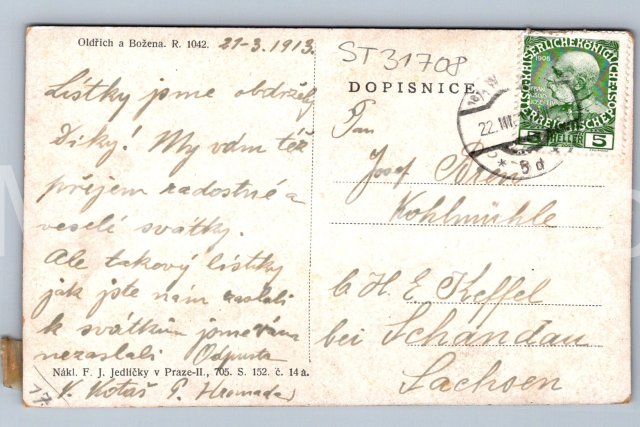 Oldřich a Božena. R. 1042.
21-3.1913.
Lístky jsme obdrželi
Díky! My vám též
přejem radostné a
veselé svátky.
Ale takový lístky
jak jste nám zaslali
k svátkům jsme vám
nezaslali Odpusťte
K. Kotaš P. Hromada
17.
Nákl. F. J. Jedličky v Praze-II., 705. S. 152. č. 14 a.
ST 31708
DOPISNICE.
Pan
Josef
Kohlmühle
b H. E. Keffel
bei Schandau
Sachsen
1908
5 HELLER 5
22.III.